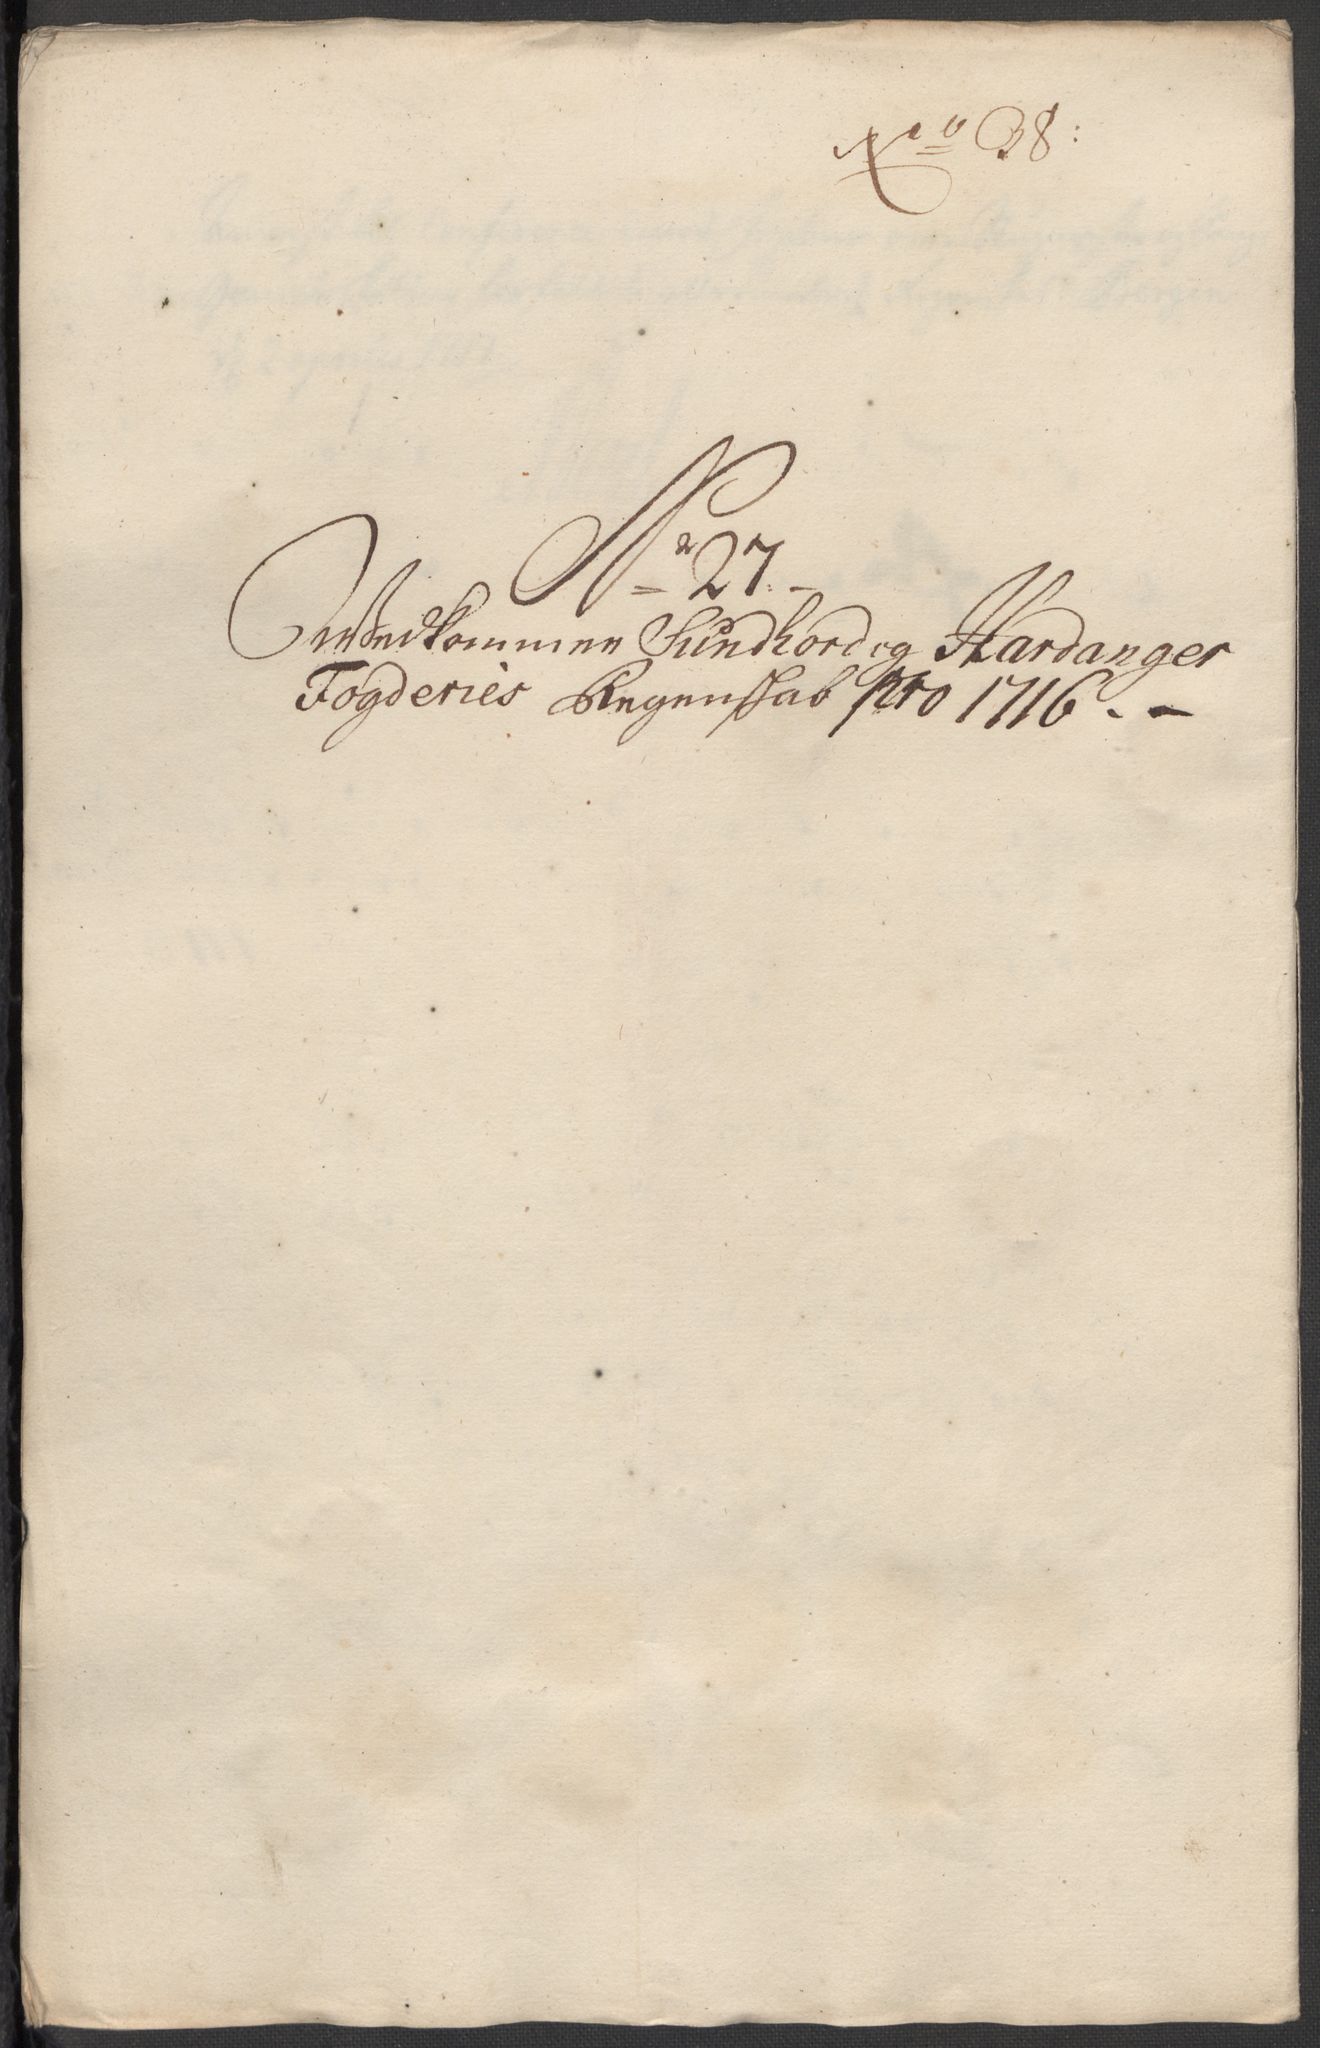 No 38:
No 27
Vedkommer Sundhord og Hardanger
Fogderies Regenskab pro 1716